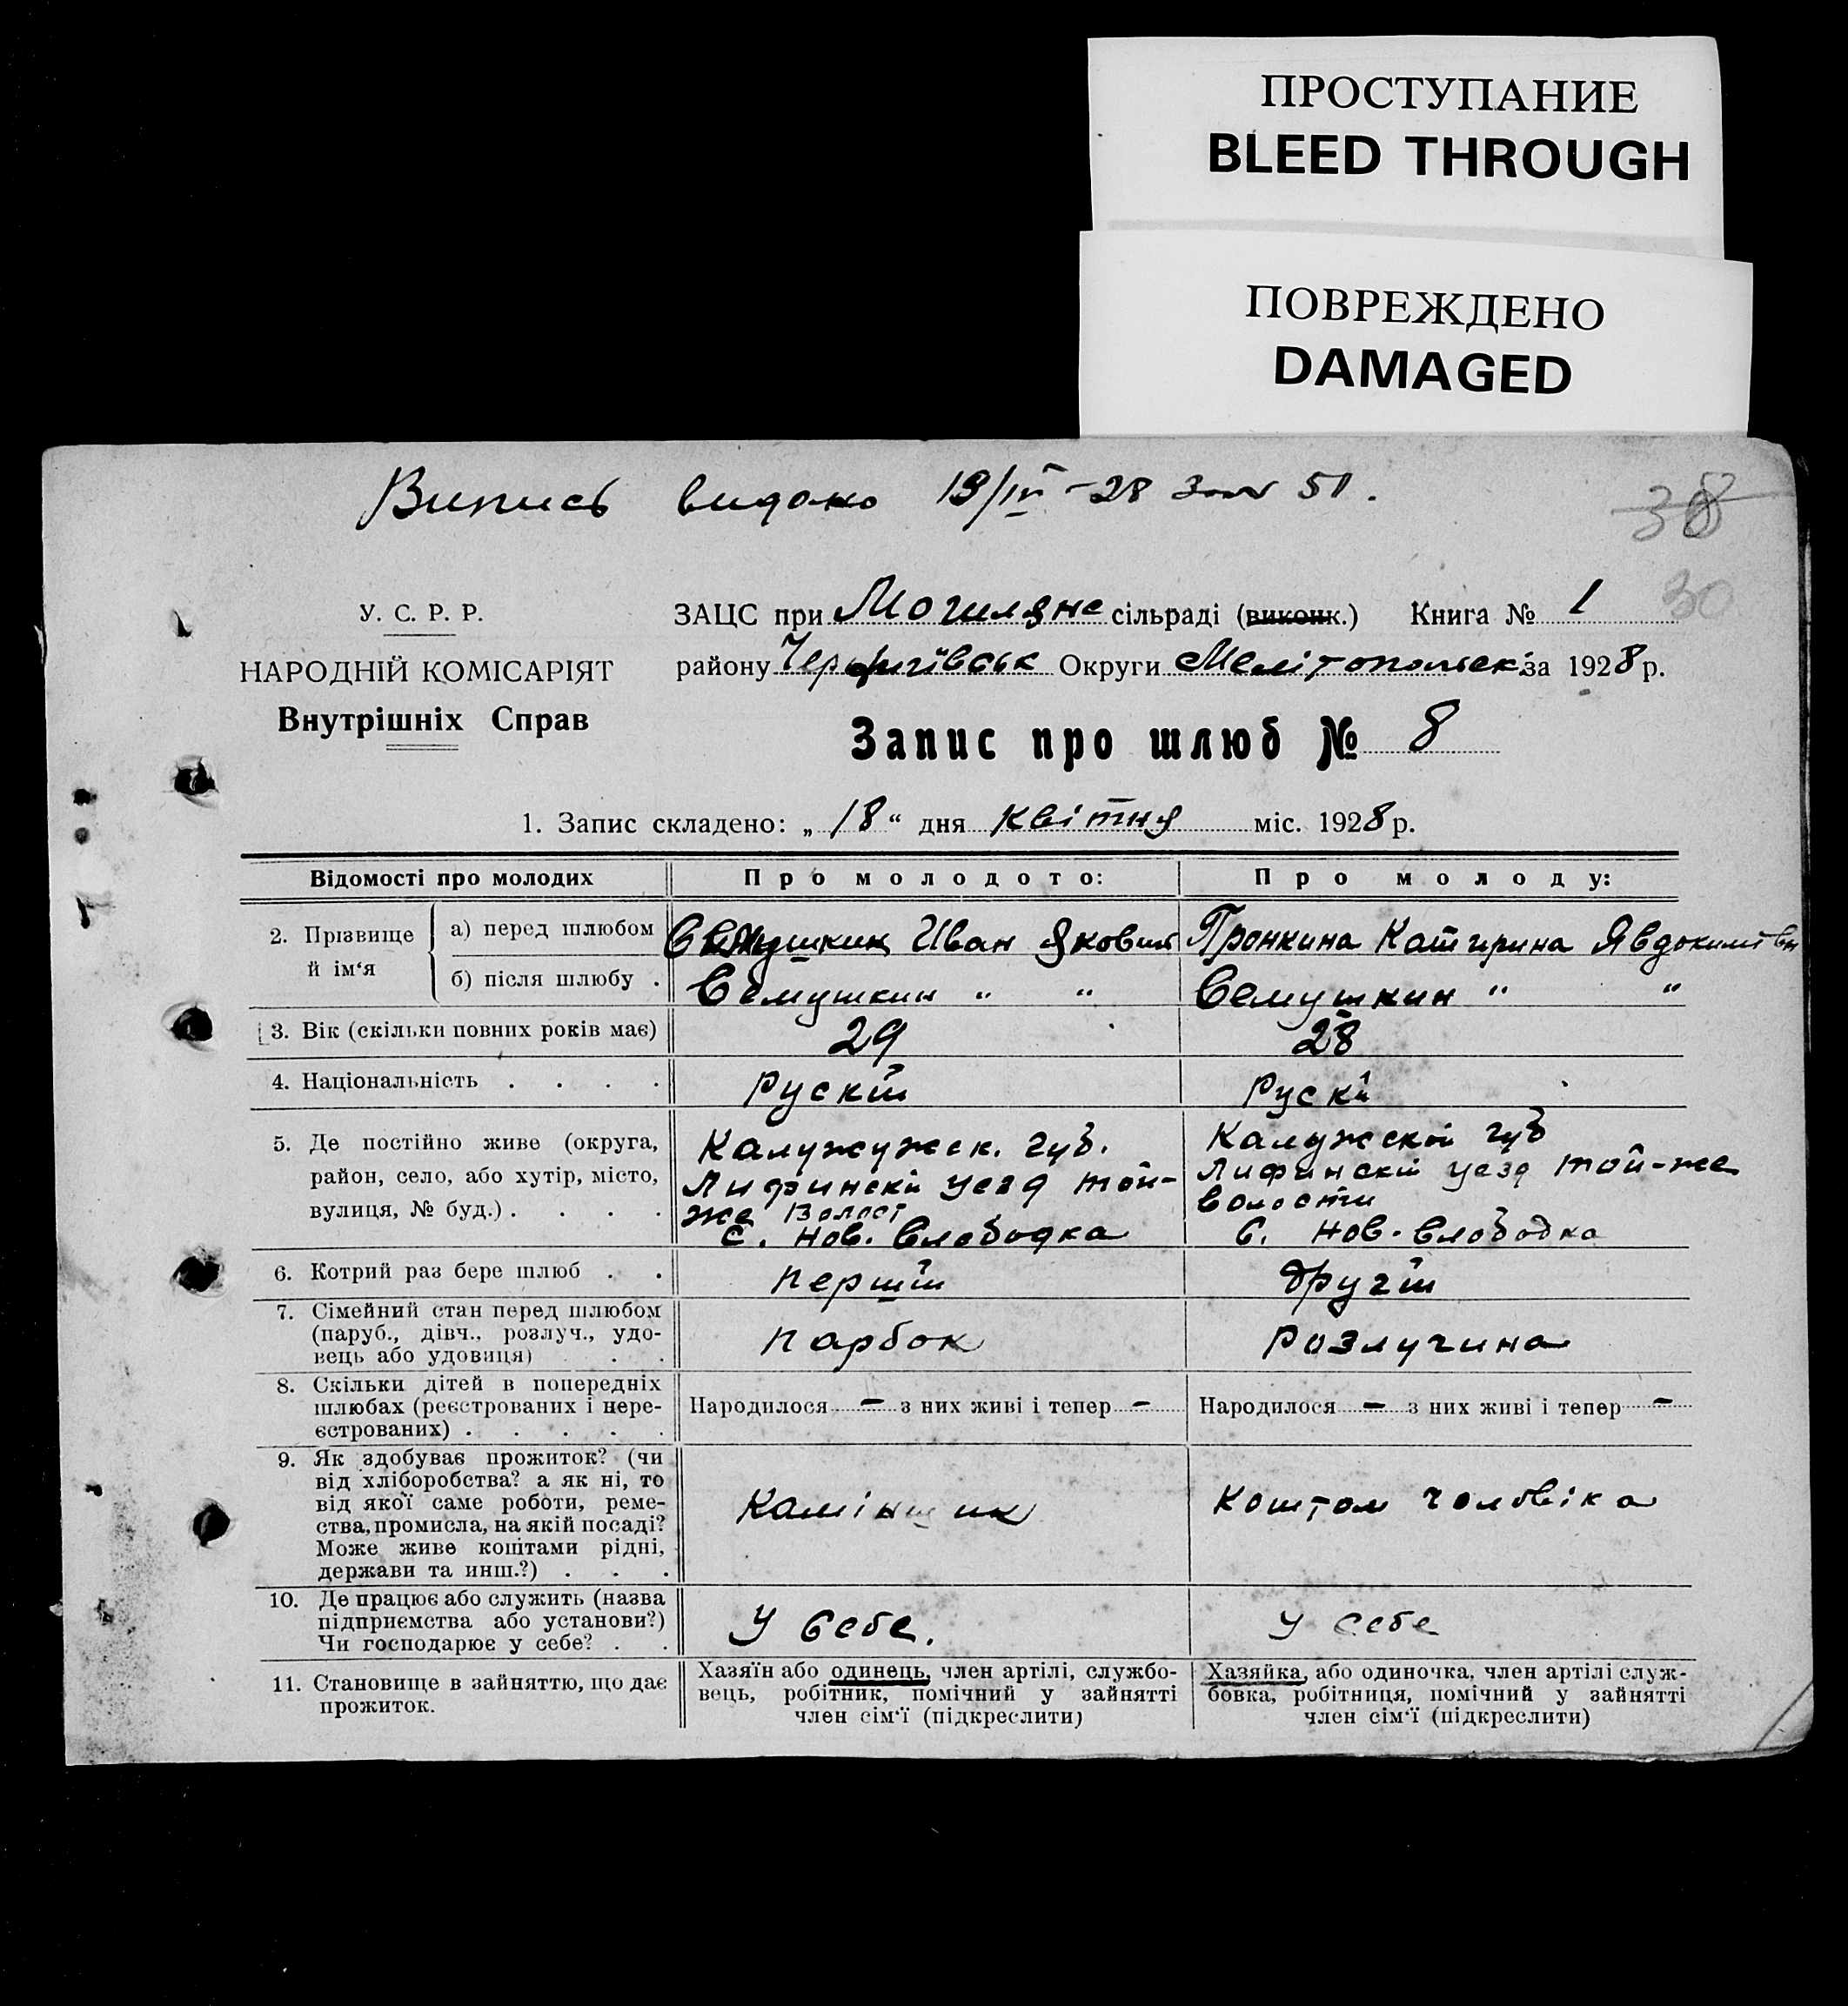 ПРОСТУПАНИЕ
BLEED THROUGH
ПОВРЕЖДЕНО
DAMAGED
Випись видано 19/IV-28 за № 51.
38
30
У. С. Р. Р.
НАРОДНІЙ КОМІСАРІЯТ
Внутрішніх Справ
ЗАЦС при Могиляне сільраді (виконк.) Книга № 1
району Чернігівськ Округи Мелітопольск. за 1928 р.
Запис про шлюб № 8
1. Запис складено: „ 18 “ дня квітня міс. 1928 р.
Відомості про молодих
Про молодого:
Про молоду:
2. Прізвище й ім‘я
а) перед шлюбом
Семушкин Иван Яковил
Пронкина Катирина Явдокимівн
б) після шлюбу .
Семушкин " "
Семушкин " "
3. Вік (скільки повних років має)
29
28
4. Національність . . . .
Рускій
Рускій
5. Де постійно живе (округа,
район, село, або хутір, місто,
вулиця, № буд.) . . . .
Калужужск. губ.
Лифинскій уезд той-
же Волост
С. Нов. Слободка
Калужской губ
Лифинскій уезд той-же
волости
С. Нов. Слободка
6. Котрий раз бере шлюб . .
перший
другій
7. Сімейний стан перед шлюбом
(паруб., дівч., розлуч., удо-
вець або удовиця) . .
парбок
Розлучина
8. Скільки дітей в попередніх
шлюбах (реєстрованих і нере-
єстрованих) . . . . .
Народилося — з них живі і тепер —
Народилося — з них живі і тепер —
9. Як здобуває прожиток? (чи
від хліборобства? а як ні, то
від якої саме роботи, реме-
ства, промисла, на якій посаді?
Може живе коштами рідні,
держави та инш.?) . . .
Камінщик
Коштом чоловіка
10. Де працює або служить (назва
підприємства або установи?)
Чи господарює у себе? . .
У себе.
У себе
11. Становище в зайняттю, що дає
прожиток.
Хазяїн або одинець, член артілі, службо-
вець, робітник, помічний у зайнятті
член сім‘ї (підкреслити)
Хазяйка, або одиночка, член артілі служ-
бовка, робітниця, помічний у зайнятті
член сім‘ї (підкреслити)